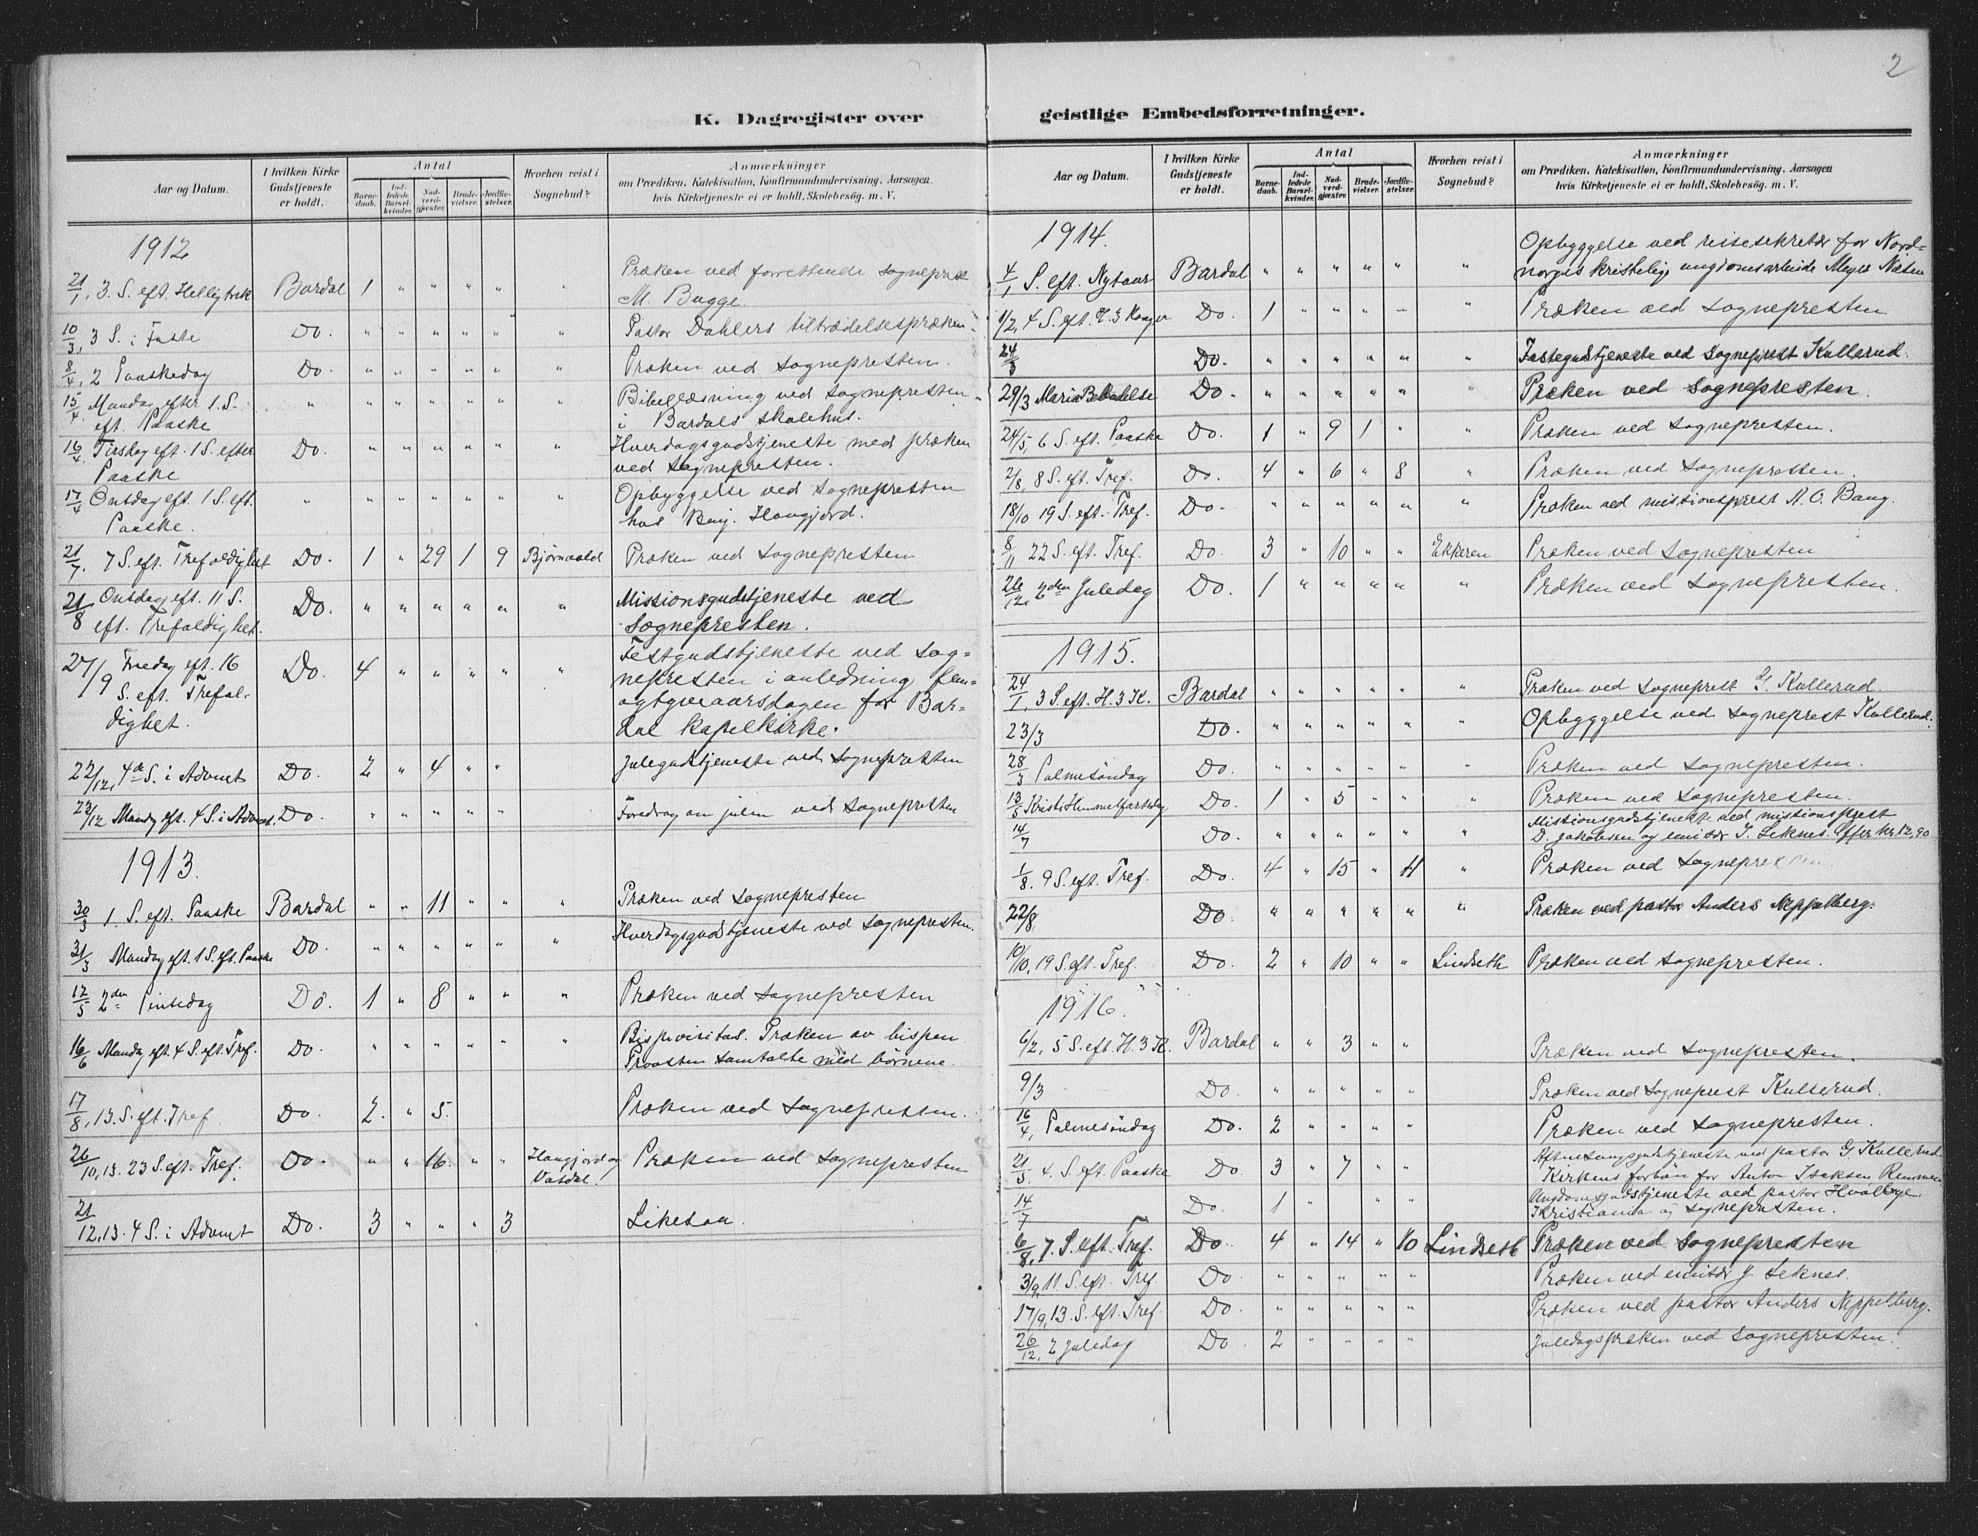 2
K. Dagregister over geistlige Embedsforretninger.
Aar og Datum. I hvilken Kirke Gudstjeneste er holdt. Antal Barnedaab. Indledede Barselkvinder. Nadverdgjæster. Brudevielser. Jordfæstelser. Hvorhen reist i Sognebud? Anmærkninger om Prædiken, Katekisation, Konfirmandundervisning, Aarsagen hvis Kirketjeneste ei er holdt, Skolebesøg, m. V.
1912
21/1, 3. S. eft. Hellig trek Bardal 1 " " " " " Præken ved forrettende sogneprest
M. Bugge.
10/3, 3 S. i Faste Do. " " " " " " Pastor Dahlers tiltrædelsespræken.
8/4, 2 Paaskedag Do. " " " " " " Præken ved sognepresten.
15/4 Mandag efter 1. S. " " " " " " " Bibellæsning ved sognepresten
eft. Paaske i Bardals skolehus.
16/4 Tirsdag eft. 1 S. efter Do. " " " " " " Hverdagsgudstjeneste med præken
Paaske ved sognepresten.
17/4 Onsdag eft. 1 S. eft. " " " " " " " Opbyggelse ved sognepresten
Paaske. hos Benj. Haugjord.
21/7. 7 S. eft. Trefoldighet Do. 1 " 29 1 9 Bjørnvald Præken ved sognepresten
21/8 Onsdag eft. 11 S. Do. " " " " " " Missionsgudstjeneste ved
eft. Trefoldighet. Sognepresten.
27/9 Fredag eft. 16 Do. 4 " " " " " Festgudstjeneste ved sog=
S. eft. Trefol- nepresten i anledning fem-
dighet. ogtyveaarsdagen for Bar-
dal kapelkirke.
22/12, 4de S. i Advent Do. 2 " 4 " " Julegudstjeneste ved sognepresten
23/12 Mandag eft. 4 S. i Advent. Do. " " " " " Foredrag om julen ved sognepresten
1913.
30/3 1. S. eft. Paaske Bardal " " 11 " " " Præken ved sognepresten
31/3 Mandag eft. 1 S. eft. Paaske Do. " " " " " " Hverdagsgudstjeneste ved sognepresten.
12/5 2den Pinsedag Do. 1 " 8 " " " Præken ved sognepresten
16/6 Mandag eft. 4 S. eft. Tref. Do. " " " " " " Bispevisitas. Præken av bispen
Provsten samtalte med børnene.
17/8, 13. S. eft. Tref Do. 2. " 5. Præken ved sognepresten.
26/10, 13. 23 S. eft. Tref. Do. " " 16. " " Haugjord og Præken ved sognepresten
Vatdal.
21/12, 13. 4 S. i Advent Do. 3 " " " 3 Liketaa.
Aar og Datum. I hvilken Kirke Gudstjeneste er holdt. Antal Barnedaab. Indledede Barselkvinder. Nadverdgjæster. Brudevielser. Jordfæstelser. Hvorhen reist i Sognebud? Anmærkninger om Prædiken, Katekisation, Konfirmandundervisning, Aarsagen hvis Kirketjeneste ei er holdt, Skolebesøg, m. V.
1914.
Opbyggelse ved reisesekretær for Nord-
4/1 S. eft. Nytaar Bardal " " " " " " norges kristelig ungdomsarbeide Meyer Næsen
1/2, 4 S. eft. H. 3 Konger Do. 1 " " " " " Præken ved sognepresten
24/3 Do. " " " " " " Fastegudstjeneste ved sogneprest Kullerud.
29/3 Mariæ Bebudelse Do. " " " " " " Præken ved sognepresten.
24/5, 6 S. eft. Paaske Do. 1 " 9 1 " " Præken ved sognepresten.
2/8, 8 S. eft. Tref. Do. 4 " 6 " 8 " Præken ved sognepresten.
18/10 19 S. eft. Tref. Do. " " " " " " Præken ved missionsprest A. O. Bang.
8/11 22 S. eft. Tref. Do. 3 " 10 " " Ekkeren Præken ved sognepresten
26/12. 2den Juledag Do. 1 " " " " " Præken ved sognepresten.
1915.
24/1, 3 S. eft. H. 3 K. Bardal " " " " " " Præken ved Sogneprest G. Kullerud.
23/3 Do. " " " " " " Opbyggelse ved sogneprest Kullerud.
28/3 Palmesöndag Do. " " " " " Præken ved sognepresten.
13/5 Kristi Himmelfartsdag Do. 1 " 5 " " " Præken ved sognepresten.
14/7 Do. " " " " " " Missionsgudstjeneste ved missionsprest
D. Jakobsen og emissær J. Seknes. Offer kr. 12,90
1/8. 9 S. eft. Tref. Do. 4 " 15 " 4 " Præken ved sognepresten
22/8 Do. " " " " " " Præken ved pastor Anders Neppelberg.
10/10, 19 S. eft. Tref. Do. 2 " 10 " " Lindseth Præken ved sognepresten.
1916.
6/2, 5 S. eft. H. 3 K. Bardal " " 3 " " Præken ved sognepresten.
9/3 Do " " " " " Præken ved Sogneprest Kullerud.
16/4, Palmesöndag Do. 2 " " " " Præken ved sognepresten.
21/5 4. S. eft. Paaske Do. 3 " 7 " " Aftensangsgudstjeneste ved pastor G. Kullerud
Kirkens forbön for Anton Isaksen
14/7 Do. 1 " " " Ungdomsgudstjeneste ved pastor Hvalbye
Kristiania og sognepresten.
6/8, 7. S. eft. Tref. Do 4 " 14 " 10 Lindseth Præken ved sognepresten
3/9, 11 S. eft. Tref. Do. " " " " " Præken ved emissær J. Seknes.
17/9, 13. S. eft. Tref. Do " " " " " Præken ved pastor Anders Neppelberg.
26/12, 2 Juledag Do. 2 " " " " Juledagspræken ved sognepresten.